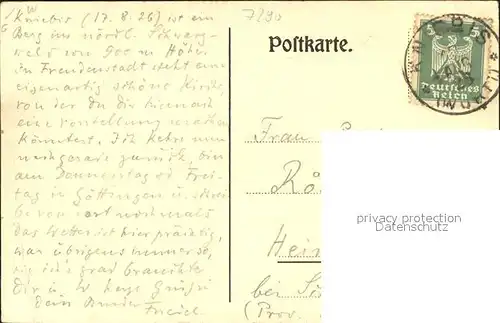 7290
Kniebis (17.8.26) ist ein
Berg im nördl. Schwarz-
wald von 900 m Höhe.
In Freudenstadt steht eine
eigenartig schöne Kirche,
von der Du dir hiernach
eine Vorstellung machen
könntest. Ich kehre nun
zurück, bin
am Donnerstag od Frei-
tag in Göttingen u. schrei-
be von dort nochmals
Das Wetter ist hier prächtig,
war übrigens immer so,
wie ich's grad brauchte
Dir u. herzl. Grüße
Dein Bruder
Postkarte.
KNIEBIS
5 5
Deutsches
Reich
Frau
Hein
bei Si
(Prov.
privacy protection
Datenschutz